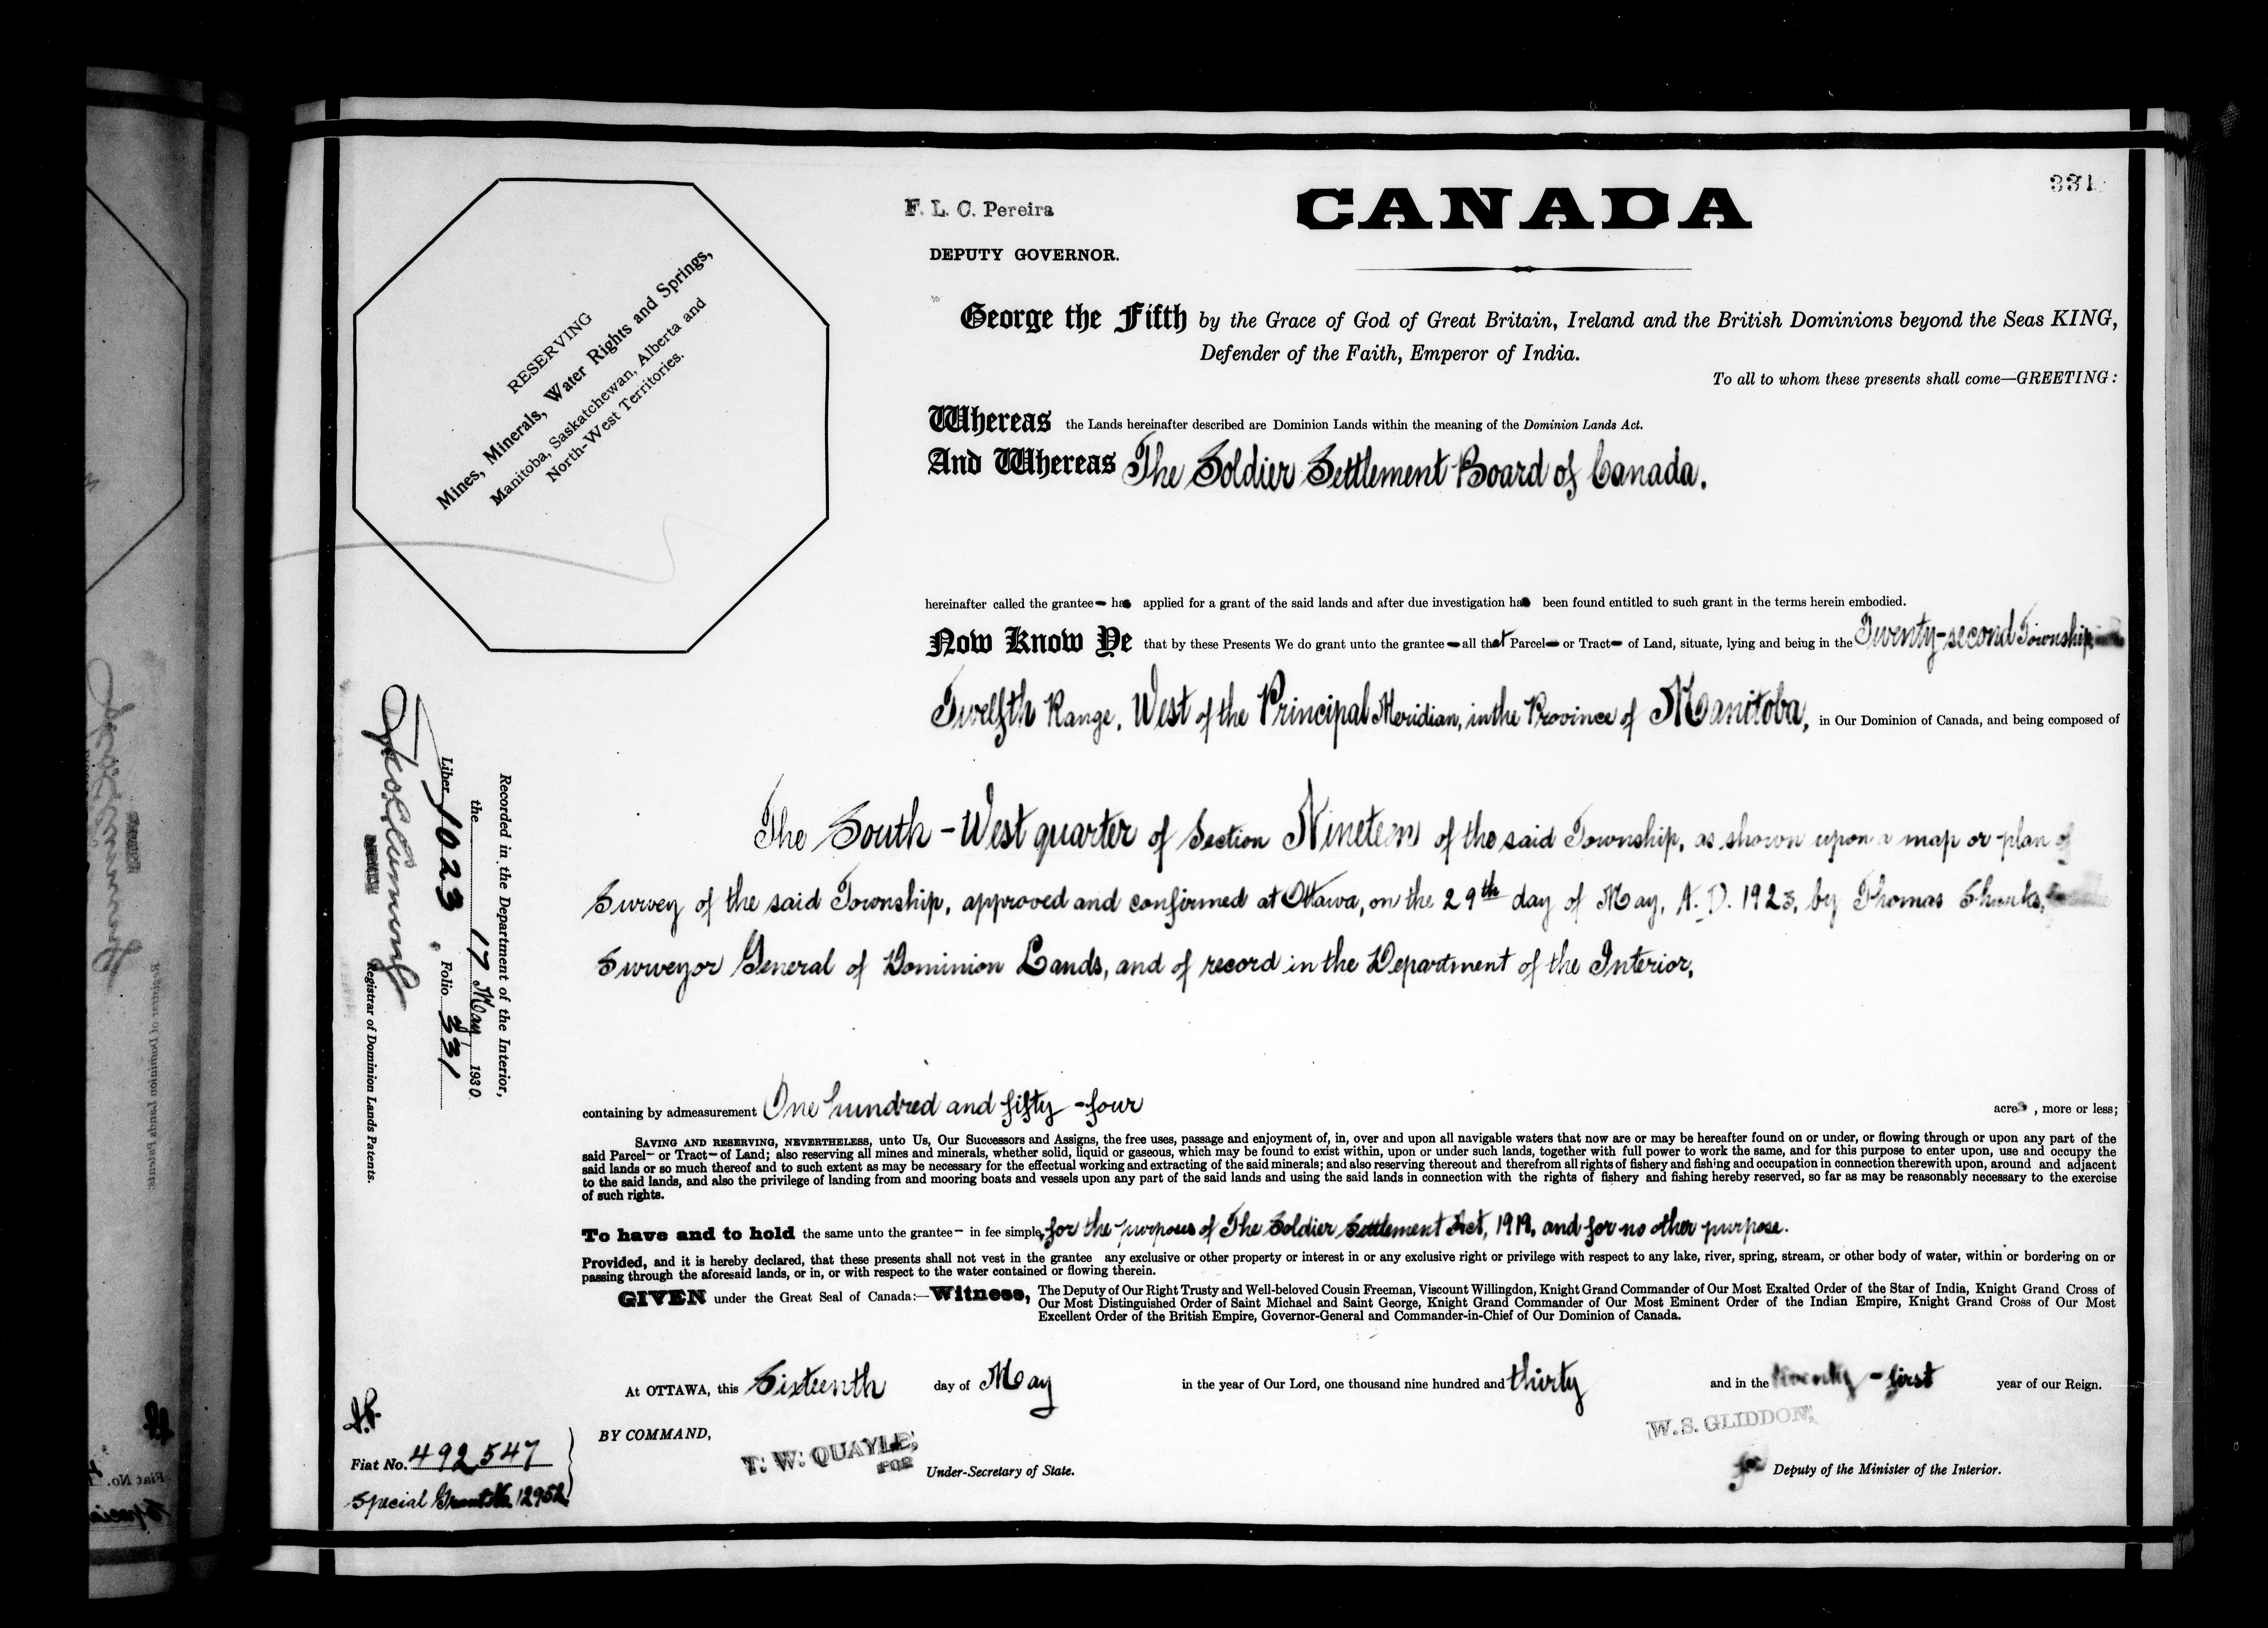 331
F. L. C. Pereira
DEPUTY GOVERNOR.
CANADA
RESERVING
Mines, Minerals, Water Rights and Springs,
Manitoba, Saskatchewan, Alberta and
North-West Territories.
George the Fifth by the Grace of God of Great Britain, Ireland and the British Dominions beyond the Seas KING,
Defender of the Faith, Emperor of India.
To all to whom these presents shall come—GREETING:
Whereas the Lands hereinafter described are Dominion Lands within the meaning of the Dominion Lands Act.
And Whereas The Soldier Settlement Board of Canada.
hereinafter called the grantee— has applied for a grant of the said lands and after due investigation has been found entitled to such grant in the terms herein embodied.
Now Know Ye that by these Presents We do grant unto the grantee—all that Parcel— or Tract— of Land, situate, lying and being in the Twenty-second Township,
Twelfth Range, West of the Principal Meridian, in the Province of Manitoba, in Our Dominion of Canada, and being composed of
The South-West quarter of Section Nineteen of the said Township, as shown upon a map or plan of
Survey of the said Township, approved and confirmed at Ottawa, on the 29th day of May, A.D. 1923, by Thomas Shanks,
Surveyor General of Dominion Lands, and of record in the Department of the Interior,
containing by admeasurement One hundred and fifty-four acres, more or less;
SAVING AND RESERVING, NEVERTHELESS, unto Us, Our Successors and Assigns, the free uses, passage and enjoyment of, in, over and upon all navigable waters that now are or may be hereafter found on or under, or flowing through or upon any part of the
said Parcel— or Tract— of Land; also reserving all mines and minerals, whether solid, liquid or gaseous, which may be found to exist within, upon or under such lands, together with full power to work the same, and for this purpose to enter upon, use and occupy the
said lands or so much thereof and to such extent as may be necessary for the effectual working and extracting of the said minerals; and also reserving thereout and therefrom all rights of fishery and fishing and occupation in connection therewith upon, around and adjacent
to the said lands, and also the privilege of landing from and mooring boats and vessels upon any part of the said lands and using the said lands in connection with the rights of fishery and fishing hereby reserved, so far as may be reasonably necessary to the exercise
of such rights.
To have and to hold the same unto the grantee— in fee simple, for the purposes of The Soldier Settlement Act, 1919, and for no other purpose.
Provided, and it is hereby declared, that these presents shall not vest in the grantee any exclusive or other property or interest in or any exclusive right or privilege with respect to any lake, river, spring, stream, or other body of water, within or bordering on or
passing through the aforesaid lands, or in, or with respect to the water contained or flowing therein.
GIVEN under the Great Seal of Canada:—Witness, The Deputy of Our Right Trusty and Well-beloved Cousin Freeman, Viscount Willingdon, Knight Grand Commander of Our Most Exalted Order of the Star of India, Knight Grand Cross of
Our Most Distinguished Order of Saint Michael and Saint George, Knight Grand Commander of Our Most Eminent Order of the Indian Empire, Knight Grand Cross of Our Most
Excellent Order of the British Empire, Governor-General and Commander-in-Chief of Our Dominion of Canada.
At OTTAWA, this Sixteenth day of May in the year of Our Lord, one thousand nine hundred and thirty and in the twenty-first year of our Reign.
BY COMMAND,
T. W. QUAYLE,
FOR
Under-Secretary of State.
W. S. GLIDDON,
for Deputy of the Minister of the Interior.
Fiat No. 492547
Special Grant No. 12952
Recorded in the Department of the Interior,
the 17 May 1930
Liber 1023, Folio 331
Registrar of Dominion Lands Patents.